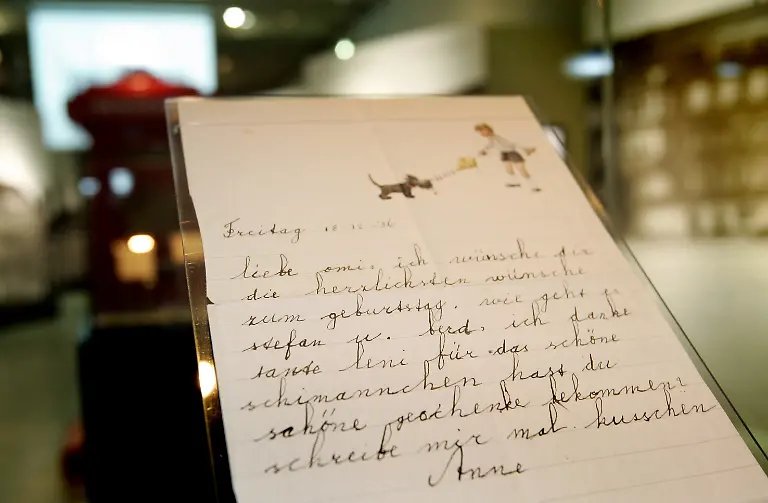 Freitag 18-12-36
liebe omi. ich wünsche dir
die herzlichsten wünsche
zum geburtstag. wie geht es
stefan u. berd. ich danke
tante leni für das schöne
schimännchen hast du
schöne geschenke bekommen?
schreibe mir mal. kusschen
Anne